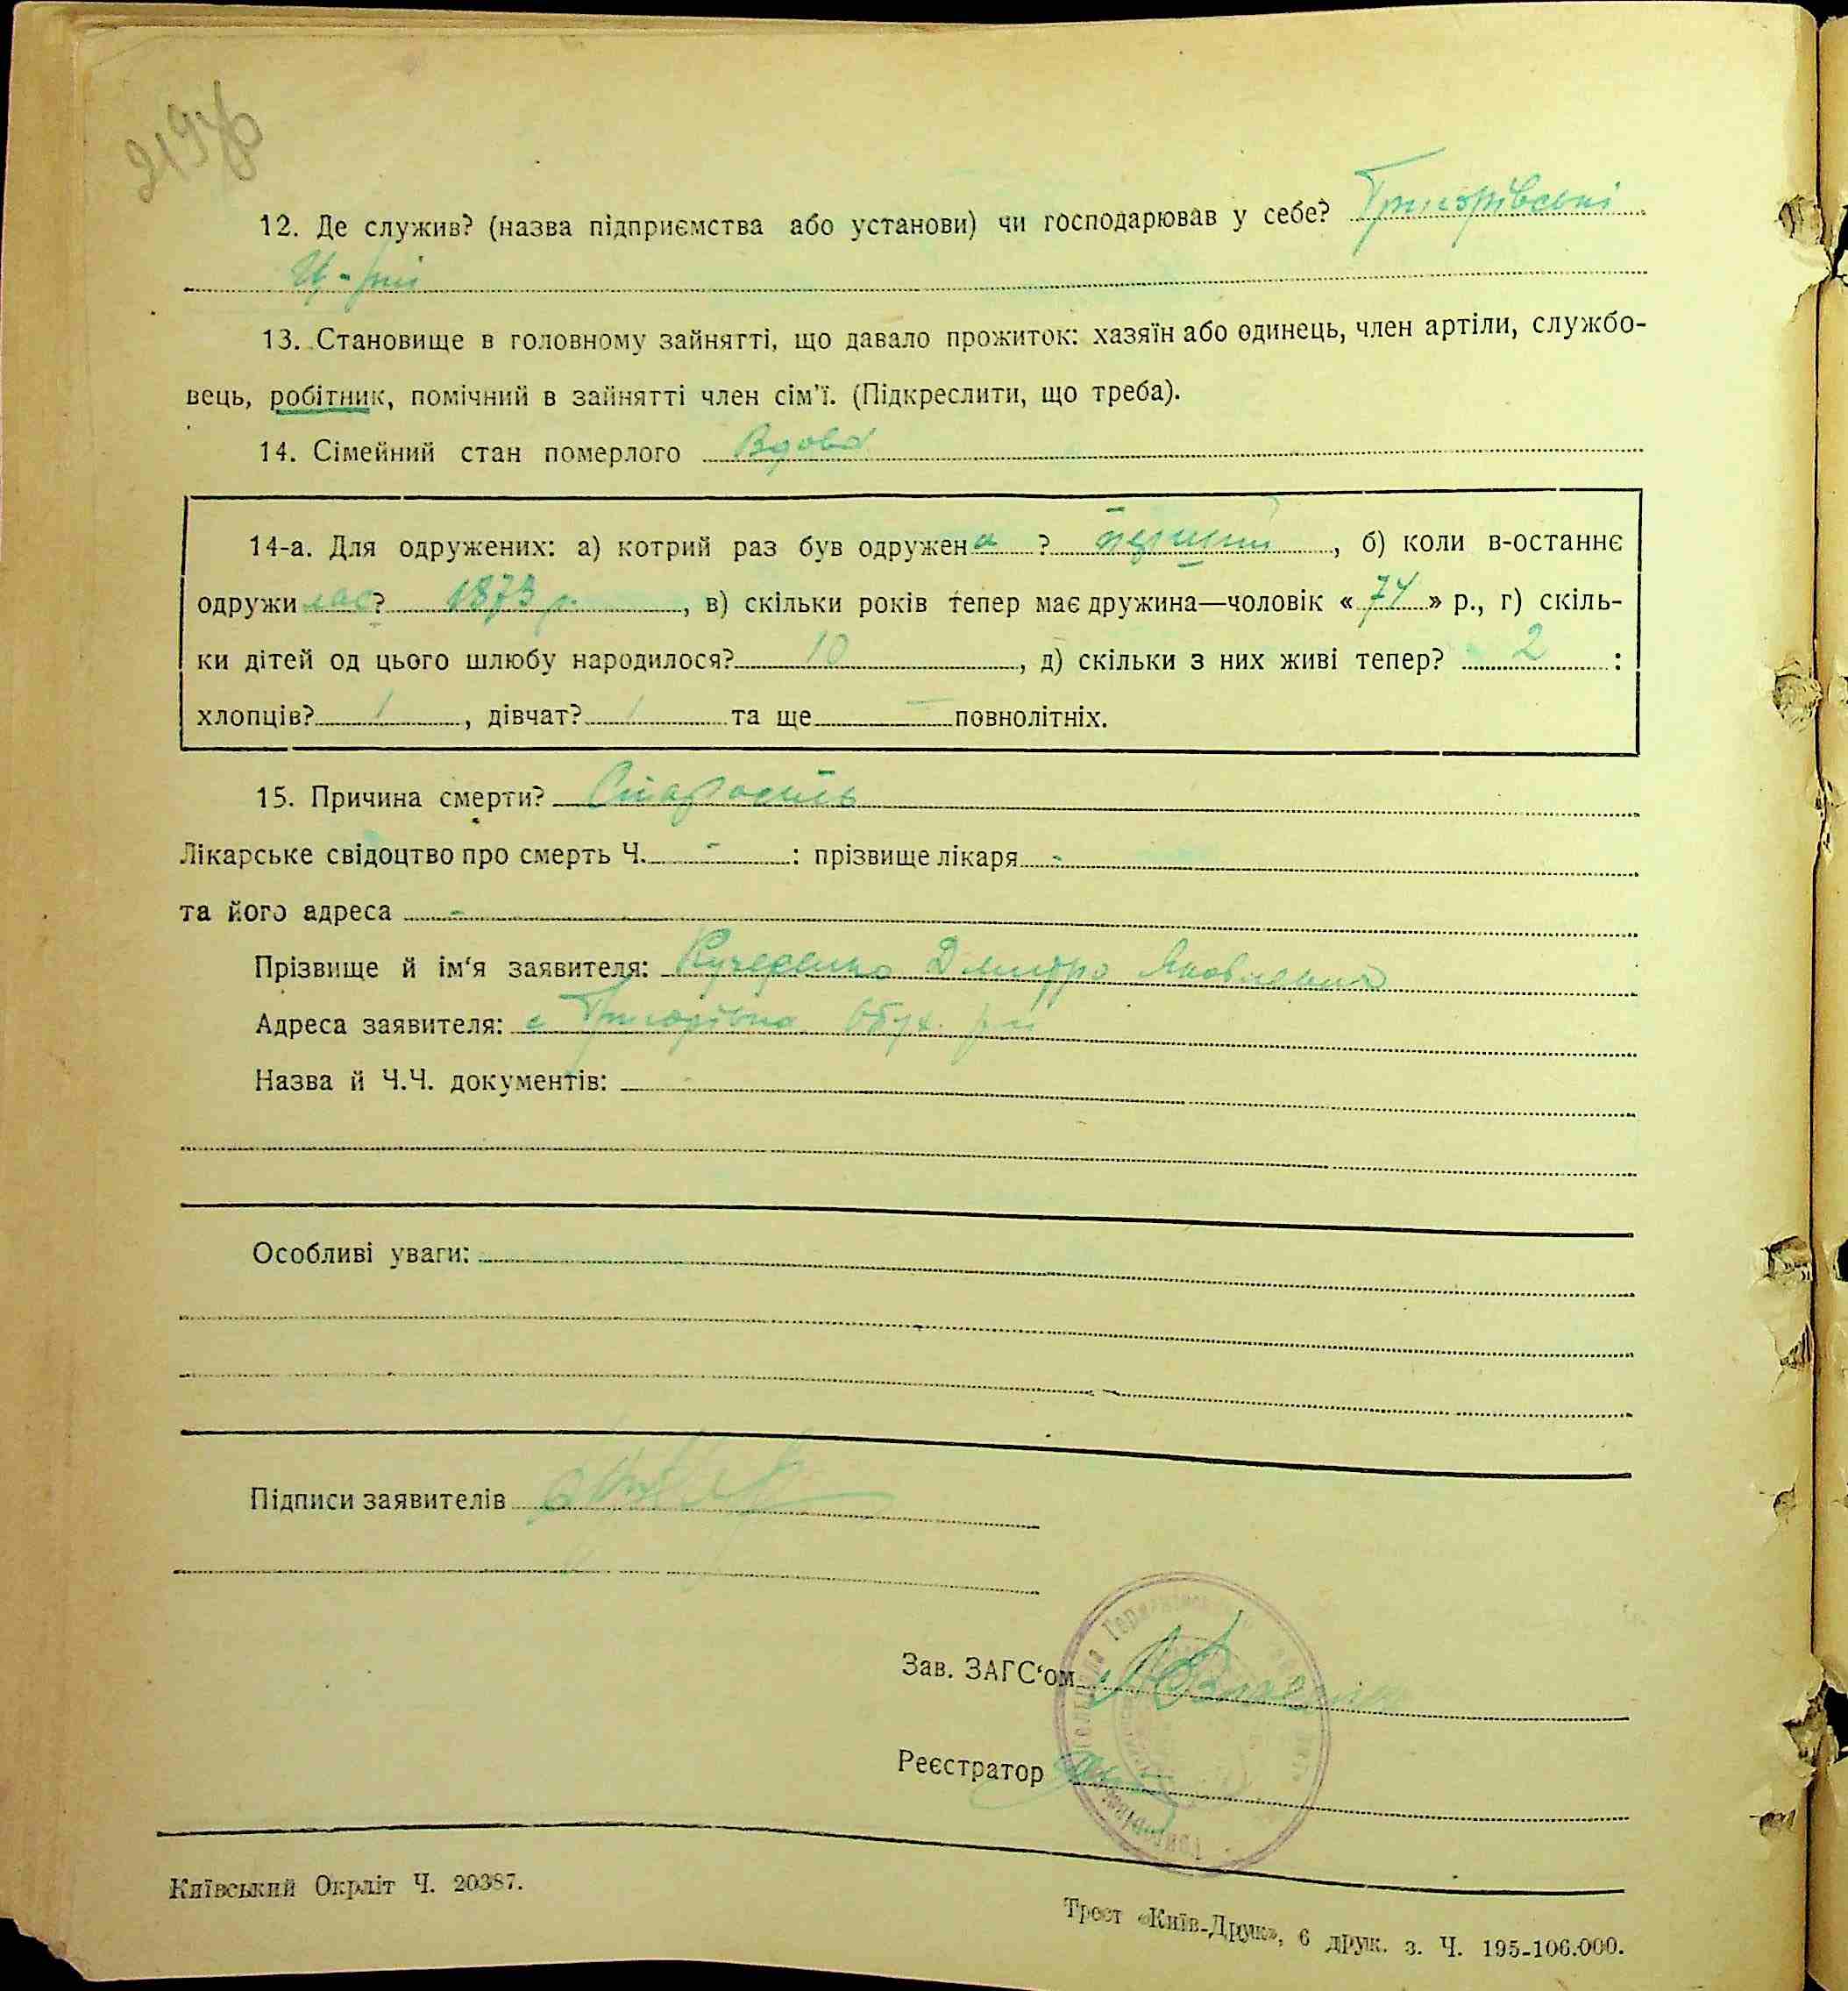 219зв
12. Де служив? (назва підприємства або установи) чи господарював у себе? Григорівській
ц-рні
13. Становище в головному зайнятті, що давало прожиток: хазяїн або одинець, член артіли, службо-
вець, робітник, помічний в зайнятті член сім'ї. (Підкреслити, що треба).
14. Сімейний стан померлого Вдова
14-а. Для одружених: а) котрий раз був одружена ? перший, б) коли в-останнє
одружилас? 1873 р., в) скільки років тепер має дружина—чоловік «74» р., г) скіль-
ки дітей од цього шлюбу народилося? 10, д) скільки з них живі тепер? 2 :
хлопців? 1, дівчат? 1 та ще — повнолітніх.
15. Причина смерти? Старость
Лікарське свідоцтво про смерть Ч. - : прізвище лікаря -
та його адреса -
Прізвище й ім'я заявителя: Кучеренко Дмитро Яковлевич
Адреса заявителя: с Григорівка Обух. р-н
Назва й Ч.Ч. документів:
Особливі уваги:
Підписи заявителів
Зав. ЗАГС'ом
Реєстратор
Київський Окрліт Ч. 20387.
Трест «Київ-Друк», 6 друк. з. Ч. 195-106.000.